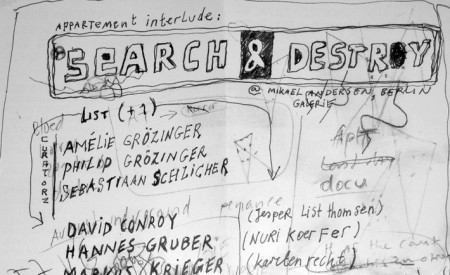 APPARTEMENT INTERLUDE:
SEARCH & DESTROY
@ MIKAEL ANDERSEN, BERLIN
GALERIE
LIST (+1)
CURATORZ
AMÉLIE GRÖZINGER
PHILIP GRÖZINGER
SEBASTIAAN SCHLICHER
docu
DAVID CONROY (Jesper List thomsen)
HANNES GRUBER (NURI KOERFER)
MARKUS KRIEGER (karsten recht)